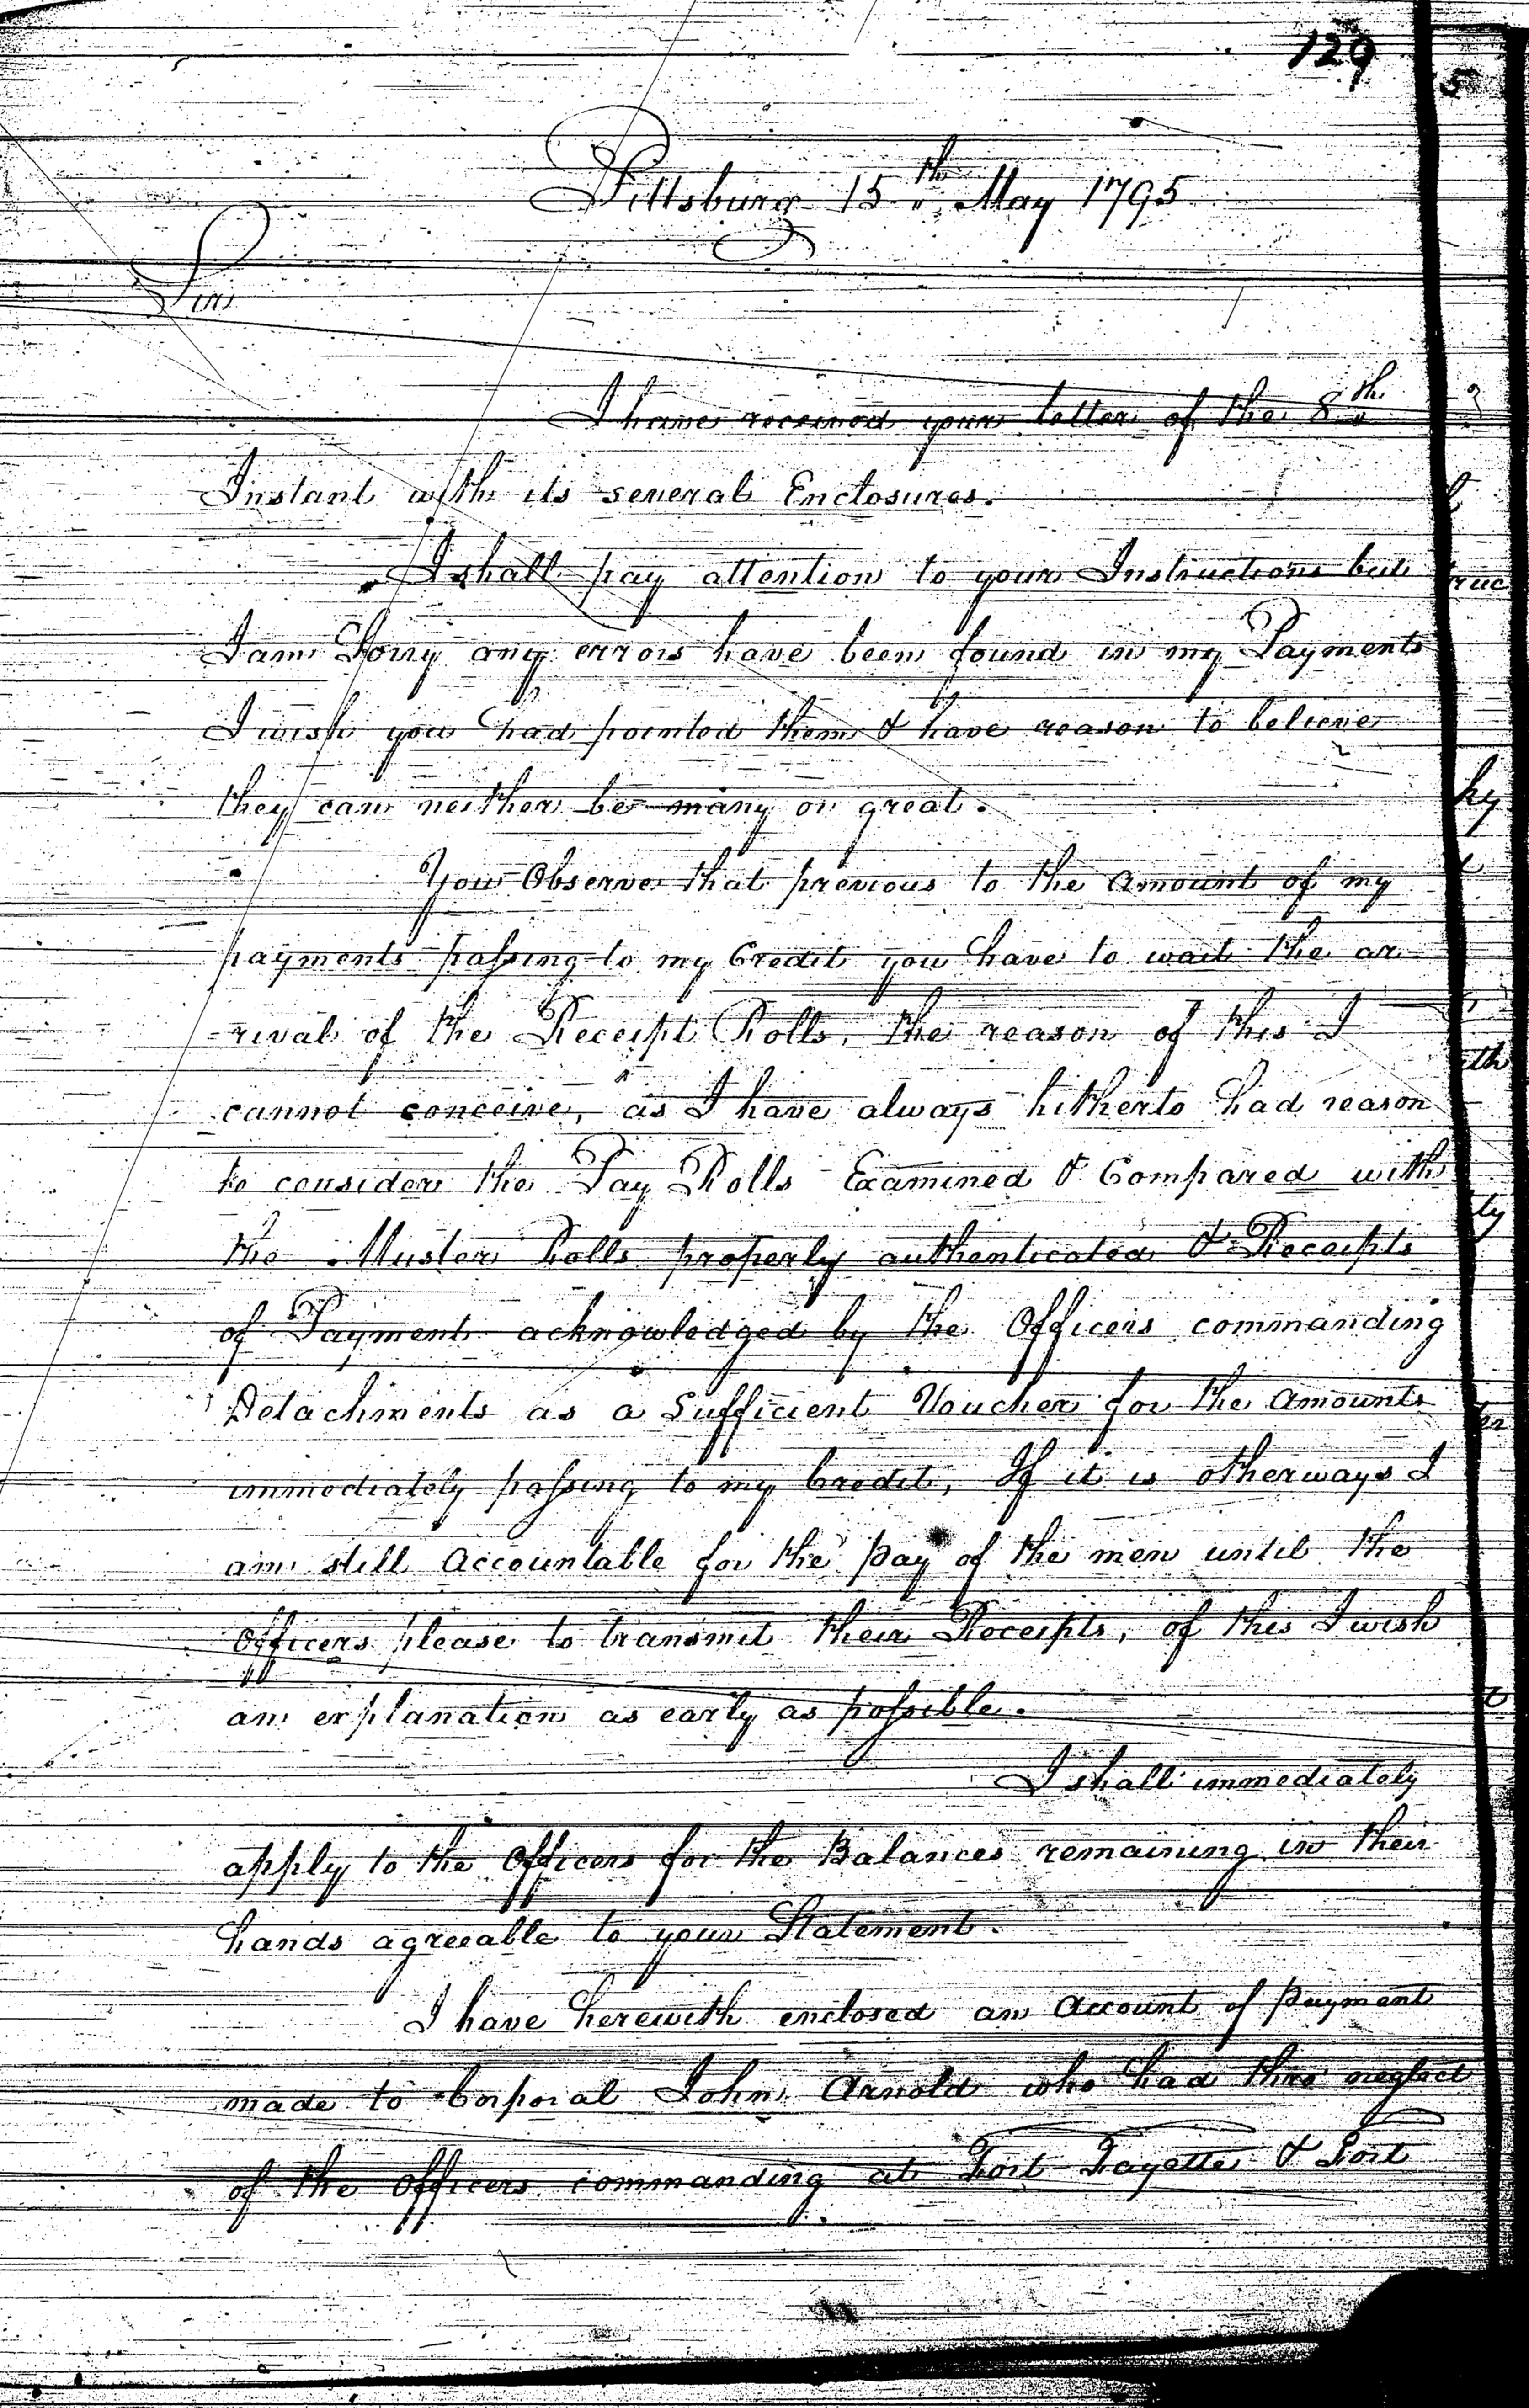 129
Pittsburg 15th May 1795
Sir
I have received your letter of the 8th
Instant with its several Enclosures.
I shall pay attention to your Instructions but
I am Sorry any errors have been found in my Payments
I wish you had pointed them & have reason to believe
they can neither be many or great.
You Observe that previous to the amount of my
payments passing to my Credit you have to wait the ar-
-rival of the Receipt Rolls, the reason of this I
cannot conceive, as I have always hitherto had reason
to consider the Pay Rolls Examined & Compared with
the Muster Rolls properly authenticated & Receipts
of Payment acknowledged by the Officers commanding
Detachments as a Sufficient Voucher for the amounts
immediately passing to my Credit, If it is otherways I
am still accountable for the pay of the men until the
Officers please to transmit their Receipts, of this I wish
an explanation as early as possible.
I shall immediately
apply to the Officers for the Balances remaining in their
hands agreeable to your Statement.
I have herewith enclosed an account of payment
made to Corporal John Arnold who had thro' neglect
of the Officers commanding at Fort Fayette & Fort